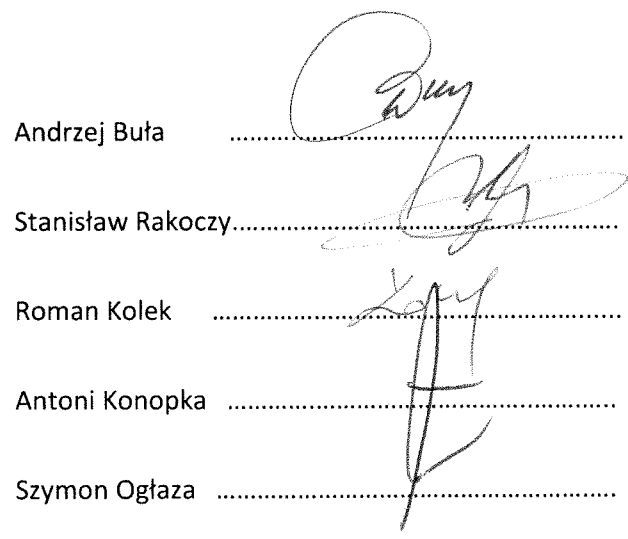 Andrzej Buła ........................................................
Stanisław Rakoczy........................................................
Roman Kolek ........................................................
Antoni Konopka ........................................................
Szymon Ogłaza ........................................................